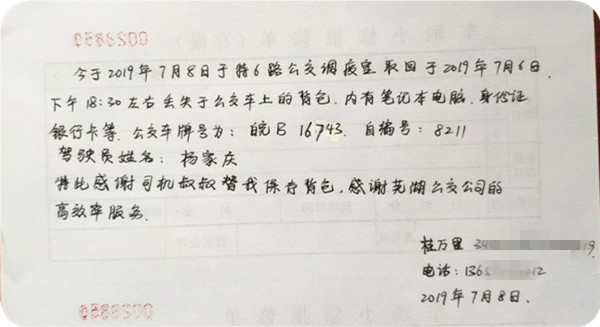 今于2019年7月8日于特6路公交调度室取回于2019年7月6日
下午18:30左右丢失于公交车上的背包.内有笔记本电脑.身份证
银行卡等.公交车牌号为:皖B 16743.自编号:8211
驾驶员姓名:杨家庆
特此感谢司机叔叔替我保存背包,感谢芜湖公交公司的
高效率服务.
桂万里 34 19.
电话:136 212
2019年7月8日.